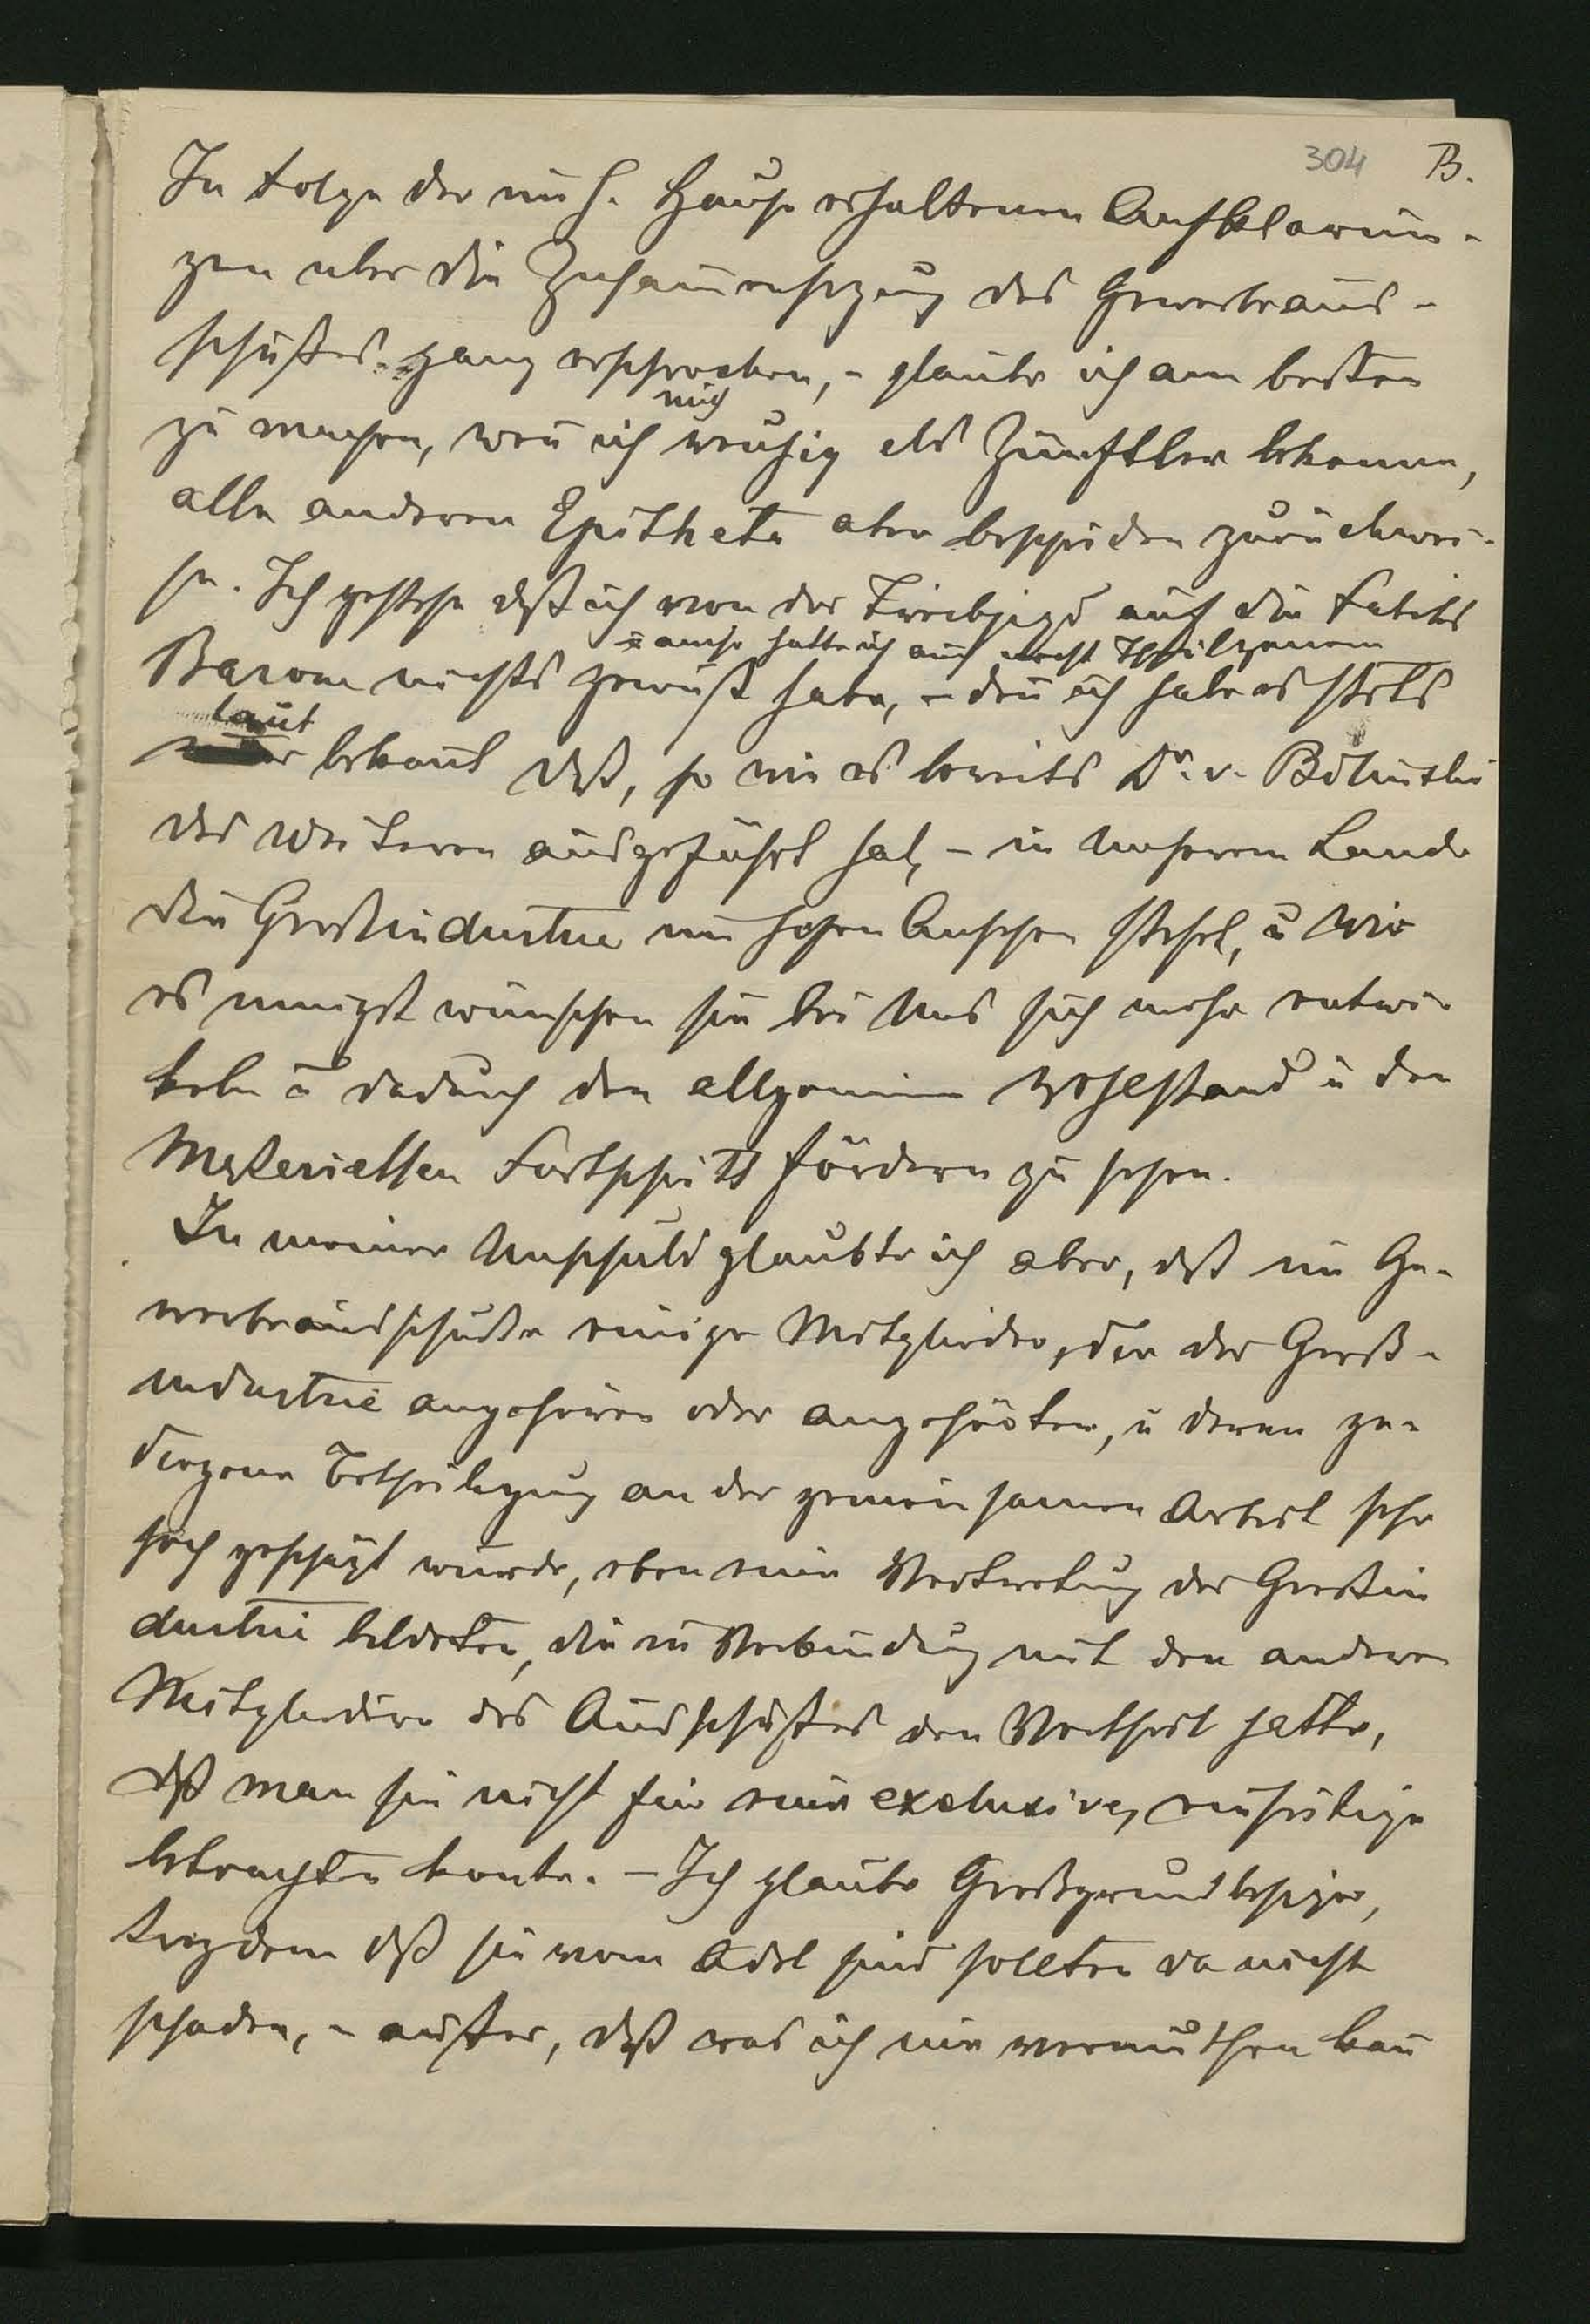 304 B.
In Folge der im h. Hause erhaltenen Aufklärun-
gen uber die Zusam̄ensezung des Gewerbeaus-
schußes ganz erschrocken, - glaube ich am besten
zu machen, wen̄ ich mich reuhig als Zünftler bekenne,
alle anderen Epitheta aber bescheiden zurückwei-
se. Ich gestehe dß ich von der Treibjagd auf die Fabriks
Barone nichts gewußt habe, - den̄ ich habe es stets
ū auch hatte ich auch nicht Theilgenom̄en
laut bekan̄t dß, so wie es bereits Dr. v. Bilinski
des Weiteren ausgeführt hat, - in unserem Lande
die Großindustrie im hohen Ansehen steht, ū wir
es innigst wünschen sie bei uns sich mehr entwi-
keln ū dadurch den allgemeinen Wohlstand ū den
Materiellen Fortschritt fördern zu sehen.
In meiner Unschuld glaubte ich aber, dß im Ge-
werbeausschuße einige Mitglieder, die der Groß-
industrie angehören oder angehörten, ū deren ge-
diegene Betheiligung an der gemeinsamen Arbeit sehr
hoch geschäzt wurde, eben eine Vertretung der Großin
dustrie bildeten, die in Verbindung mit den anderen
Mitgliedern des Ausschußes den Vortheil hatte,
dß man sie nicht für eine exclusive, einseitige
betrachten konte. - Ich glaube Großgrundbesizer,
trozdem dß sie vom Adel sind sollten da nicht
schaden, - außer, dß was ich nur vermuthen kan̄